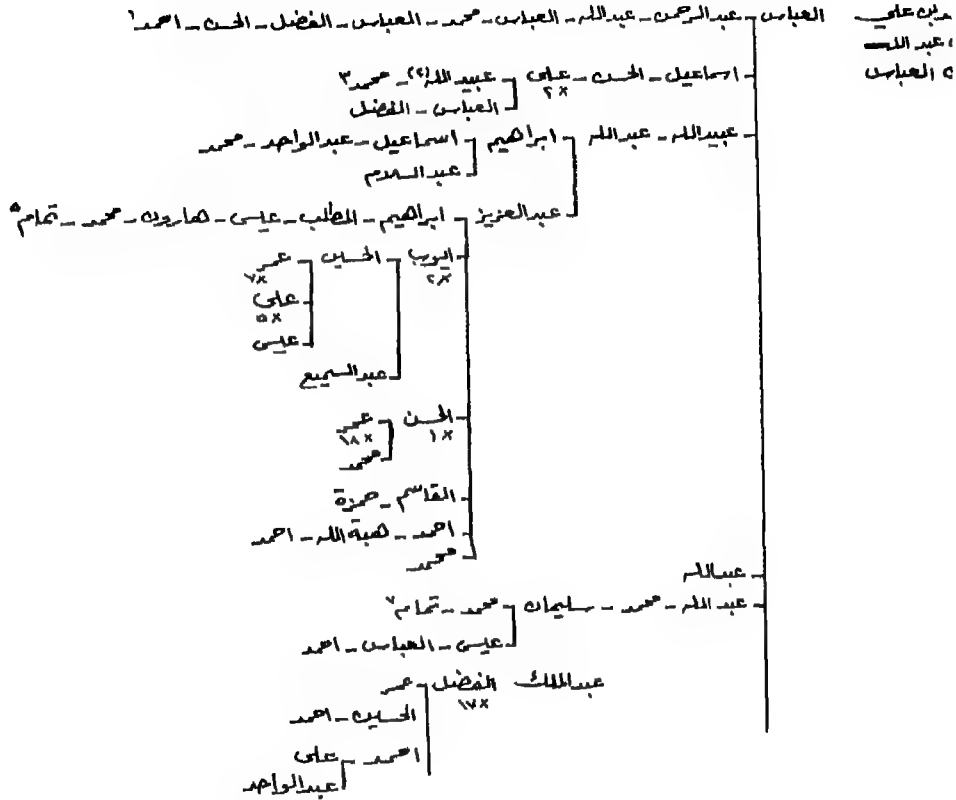 بن علي العباس – عبد الرحمن – عبد الله – العباس – محمد – العباس – الفضل – الحسن – احمد ١
عبد الله
العباس
اسماعيل – الحسن – علي – عبيد الله (٢٢) – محمد ٣
×٢
العباس – الفضل
عبيد الله – عبد الله – ابراهيم – اسماعيل – عبد الواحد – محمد
عبد السلام
عبد العزيز – ابراهيم – المطلب – عيسى – هارون – محمد – تمام ٥
ايوب – الحسين – عمر
×٢ ×٧
علي
×٥
عيسى
عبد السميع
الحسن – عمر
×١ ×١٨
محمد
القاسم – حمزة
احمد – هبة الله – احمد
محمد
عبد الله
عبد الله – محمد – سليمان – محمد – تمام ٧
عيسى – العباس – احمد
عبد الملك الفضل – عمر
×١٧
الحسين – احمد
احمد – علي
عبد الواحد